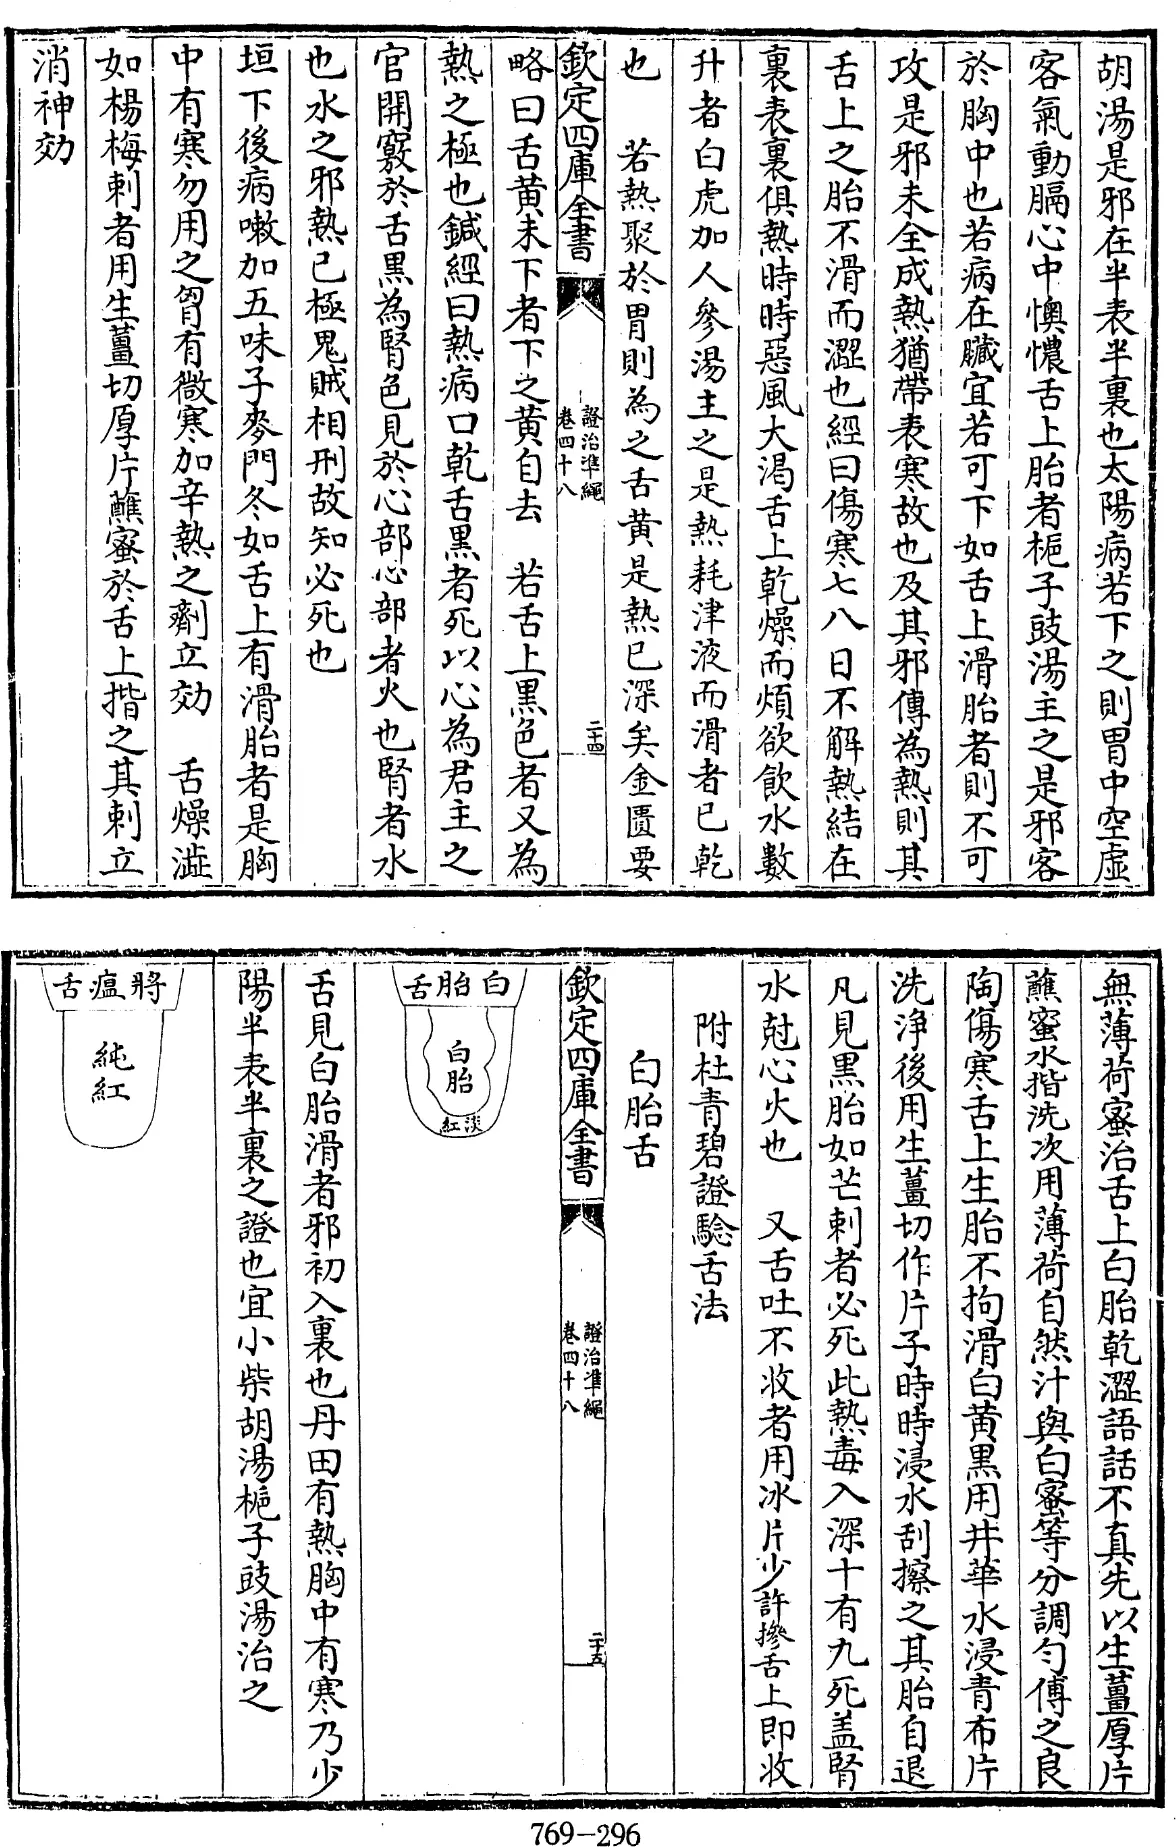 胡湯是邪在半表半裏也太陽病若下之則胃中空虛
客氣動膈心中懊憹舌上胎者梔子豉湯主之是邪客
於胸中也若病在臟宜若可下如舌上滑胎者則不可
攻是邪未全成熱猶帶表寒故也及其邪傳為熱則其
舌上之胎不滑而澀也經曰傷寒七八日不解熱結在
裏表裏俱熱時時惡風大渴舌上乾燥而煩欲飲水數
升者白虎加人參湯主之是熱耗津液而滑者已乾
也　若熱聚於胃則為之舌黄是熱已深矣金匱要
欽定四庫全書
證治準繩
卷四十八
二十四
略曰舌黄未下者下之黄自去　若舌上黒色者又為
熱之極也鍼經曰熱病口乾舌黒者死以心為君主之
官開竅於舌黒為腎色見於心部心部者火也腎者水
也水之邪熱已極鬼賊相刑故知必死也
垣下後病嗽加五味子麥門冬如舌上有滑胎者是胸
中有寒勿用之胷有微寒加辛熱之劑立効　舌燥澁
如楊梅刺者用生薑切厚片蘸蜜於舌上揩之其刺立
消神効
無薄荷蜜治舌上白胎乾澀語話不真先以生薑厚片
蘸蜜水揩洗次用薄荷自然汁與白蜜等分調勻傅之良
陶傷寒舌上生胎不拘滑白黄黒用井華水浸青布片
洗淨後用生薑切作片子時時浸水刮擦之其胎自退
凡見黒胎如芒刺者必死此熱毒入深十有九死盖腎
水尅心火也　又舌吐不收者用冰片少許摻舌上即收
附杜青碧證驗舌法
白胎舌
欽定四庫全書
證治準繩
卷四十八
二十五
白胎舌
白胎
淡紅
舌見白胎滑者邪初入裏也丹田有熱胸中有寒乃少
陽半表半裏之證也宜小柴胡湯梔子豉湯治之
將瘟舌
純紅
769-296